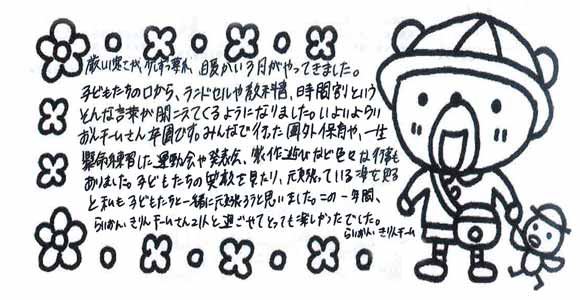 厳しい寒さが少しずつ和らぎ、日長がいい3月がやってきました。
子どもたちの口から、ランドセルや教科書、時間割という
そんな言葉が聞こえてくるようになりました。いよいよらい
おんチームさん卒園です。みんなで行った園外保育や、一生
懸命練習した運動会や発表会、製作遊びなど色々な行事も
ありました。子どもたちの笑顔を見たり、元気に頑張っている姿を見る
と私も子どもたちと一緒に元気に頑張ろうと思いました。この一年間、
らいおん、きりんチームさん21人と過ごせてとっても楽しかったでした。
らいおん、きりんチーム